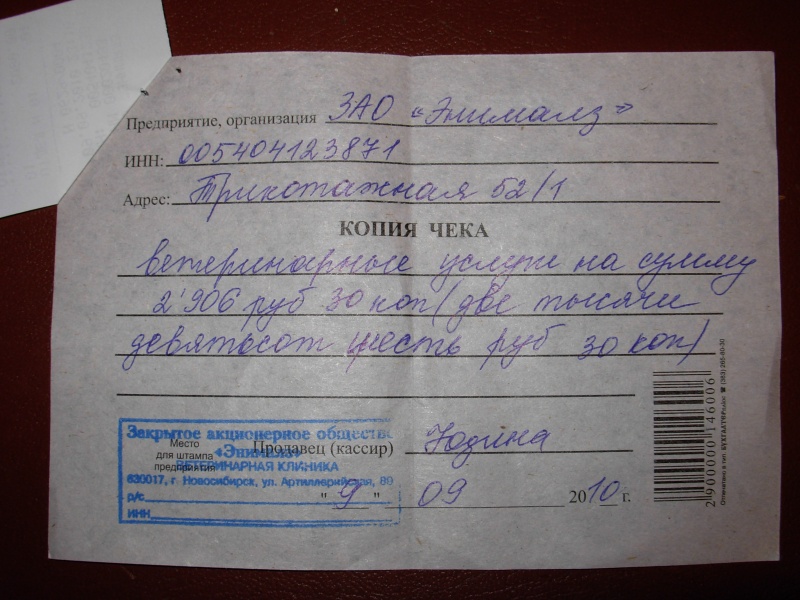 Предприятие, организация ЗАО «Энималз»
ИНН: 005404123871
Адрес: Трикотажная 52/1
КОПИЯ ЧЕКА
ветеринарные услуги на сумму
2'906 руб 30 коп (две тысячи
девятьсот шесть руб 30 коп)
Закрытое акционерное общество
«Энималз»
ВЕТЕРИНАРНАЯ КЛИНИКА
630017, г. Новосибирск, ул. Артиллерийская, 80
р/с
ИНН
Место
для штампа
предприятия
Продавец (кассир) Юдина
"9" 09 2010 г.
2900000146006